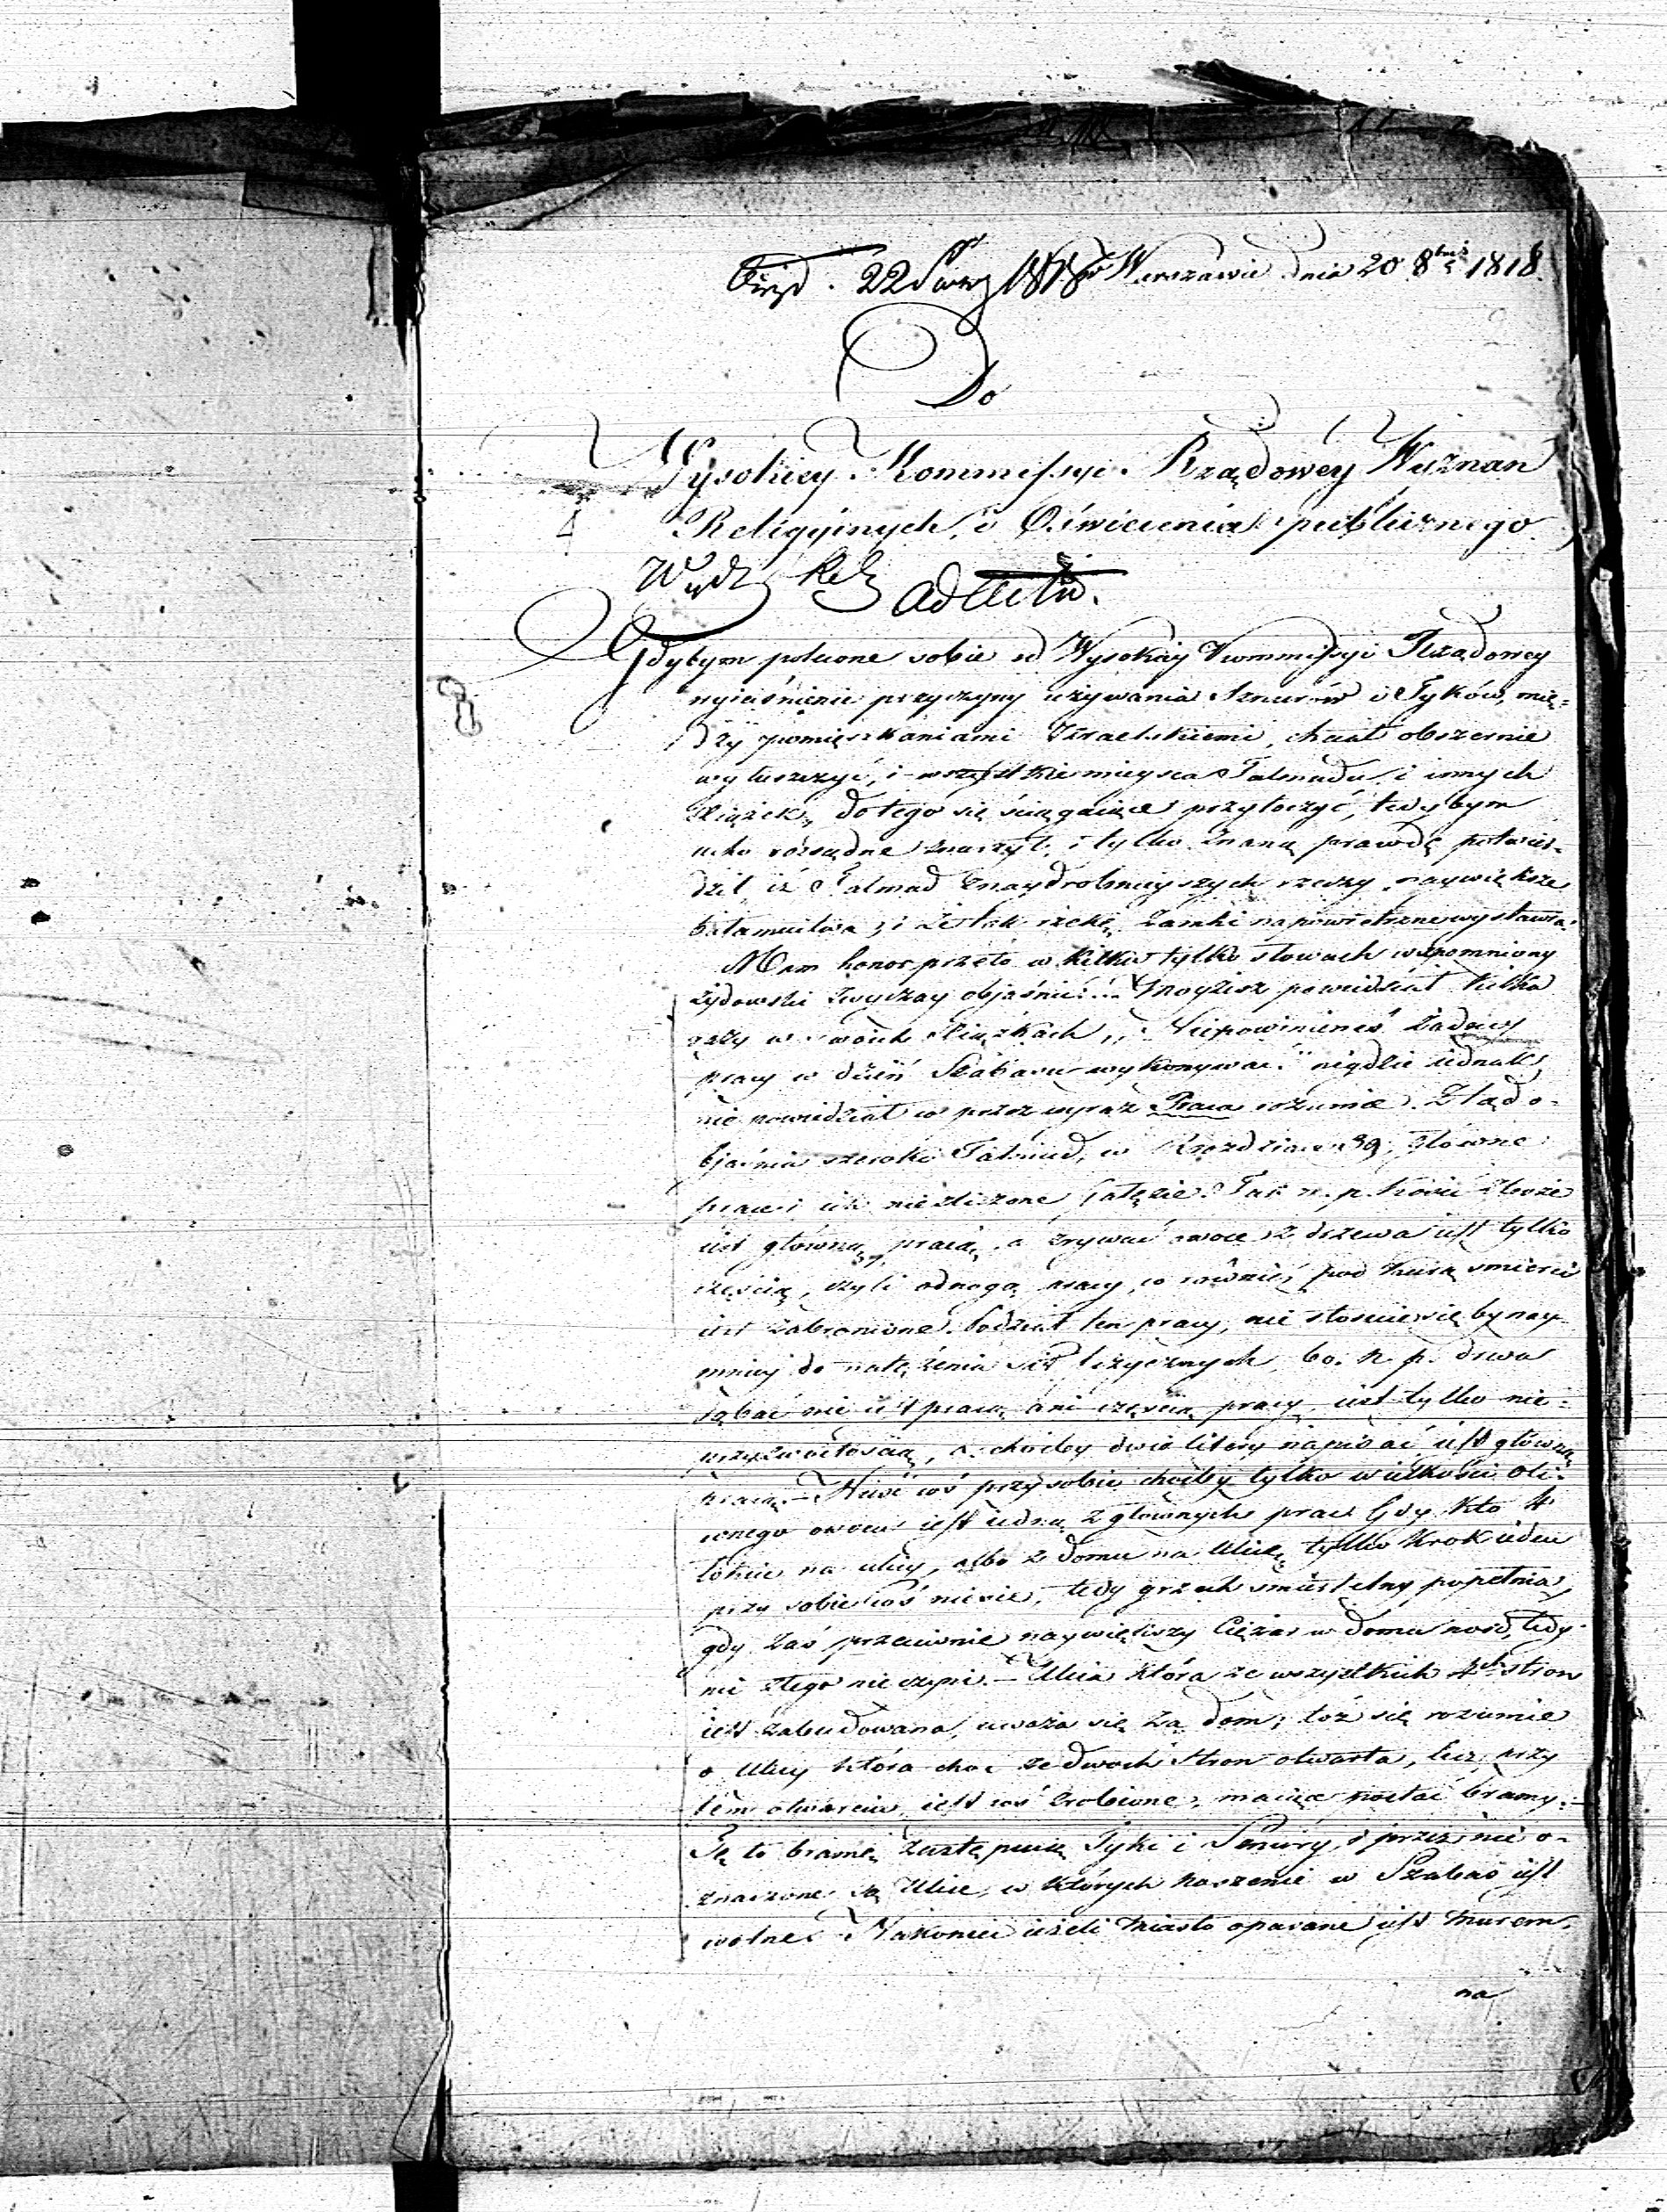 22 1818 w Warszawie dnia 20 8bris 1818.
Do
Wysokiey Kommissyi Rządowey Wyznań
Religyinych, i Oświecenia publicznego
Wydz. Rel. ad acta.
Gdybym polecone sobie od Wysokiey Kommissyi Rządowey
wyiaśnienie przyczyny używania Sznurów i Tyków, mię=
dzy pomięszkaniami Izraelskiemi, chciał obszernie
wyłuszczyć, i wszystkie mieysca Talmudu i innych
Xiążek, do tego się ściągaiące przytoczyć, tedybym
znaną prawdę potwier-
dził iż Talmud z naydrobnieyszych rzeczy naywiększe
i że tak rzekę, zamki na powietrzne wystawia.
Mam honor przeto w kilku tylko słowach wspomniony
żydowski zwyczay objaśnić: Moyżesz powiedział kilka
razy w swoich Xiążkach „Niepowinieneś żadney
pracy w dzień Szabasu wykonywać." nigdzie iednak
nie powiedział co przez wyraz Praca rozumie. Ztąd o-
bjaśnia szeroko Talmud, w Rozdziale 39. główne
prace i ich niezliczone gałęzie. Tak n. p. kosić zboże
iest główną pracą, a zrywać owoce z drzewa iest tylko
częścią, czyli odnogą pracy, co również pod karą śmierci
iest zabronione. Podział ten pracy, nie stosuie się bynay-
mniey do natężenia sił fizycznych, bo n. p. drwa
rąbać nie iest pracą ani częścią pracy, iest tylko nie-
przyzwoitością, a choćby dwie litery napisać iest główną
pracą. — Nieść coś przy sobie, choćby tylko w wielkości oli-
wnego owocu iest iedną z głównych prac. Gdy kto 4
łokcie na ulicy, albo z domu na Ulicę tylko krok ieden
przy sobie coś niesie, tedy grzech śmiertelny popełnia,
gdy zaś przeciwnie naywiększy Ciężar w domu nosi, tedy
nic złego nie czyni. — Ulica która ze wszystkich 4ch stron
iest zabudowana, uważa się za dom; toż się rozumie
o Ulicy która choć ze dwóch Stron otwarta, lecz przy
tém otwarciu iest coś zrobione, maiące postać bramy. —
Tę to bramę zastępuią Tyki i Sznury, i przez nie o-
znaczone są Ulice, w których noszenie w Szabas iest
wolne. Nakoniec ieżeli miasto oparane iest murem,
na